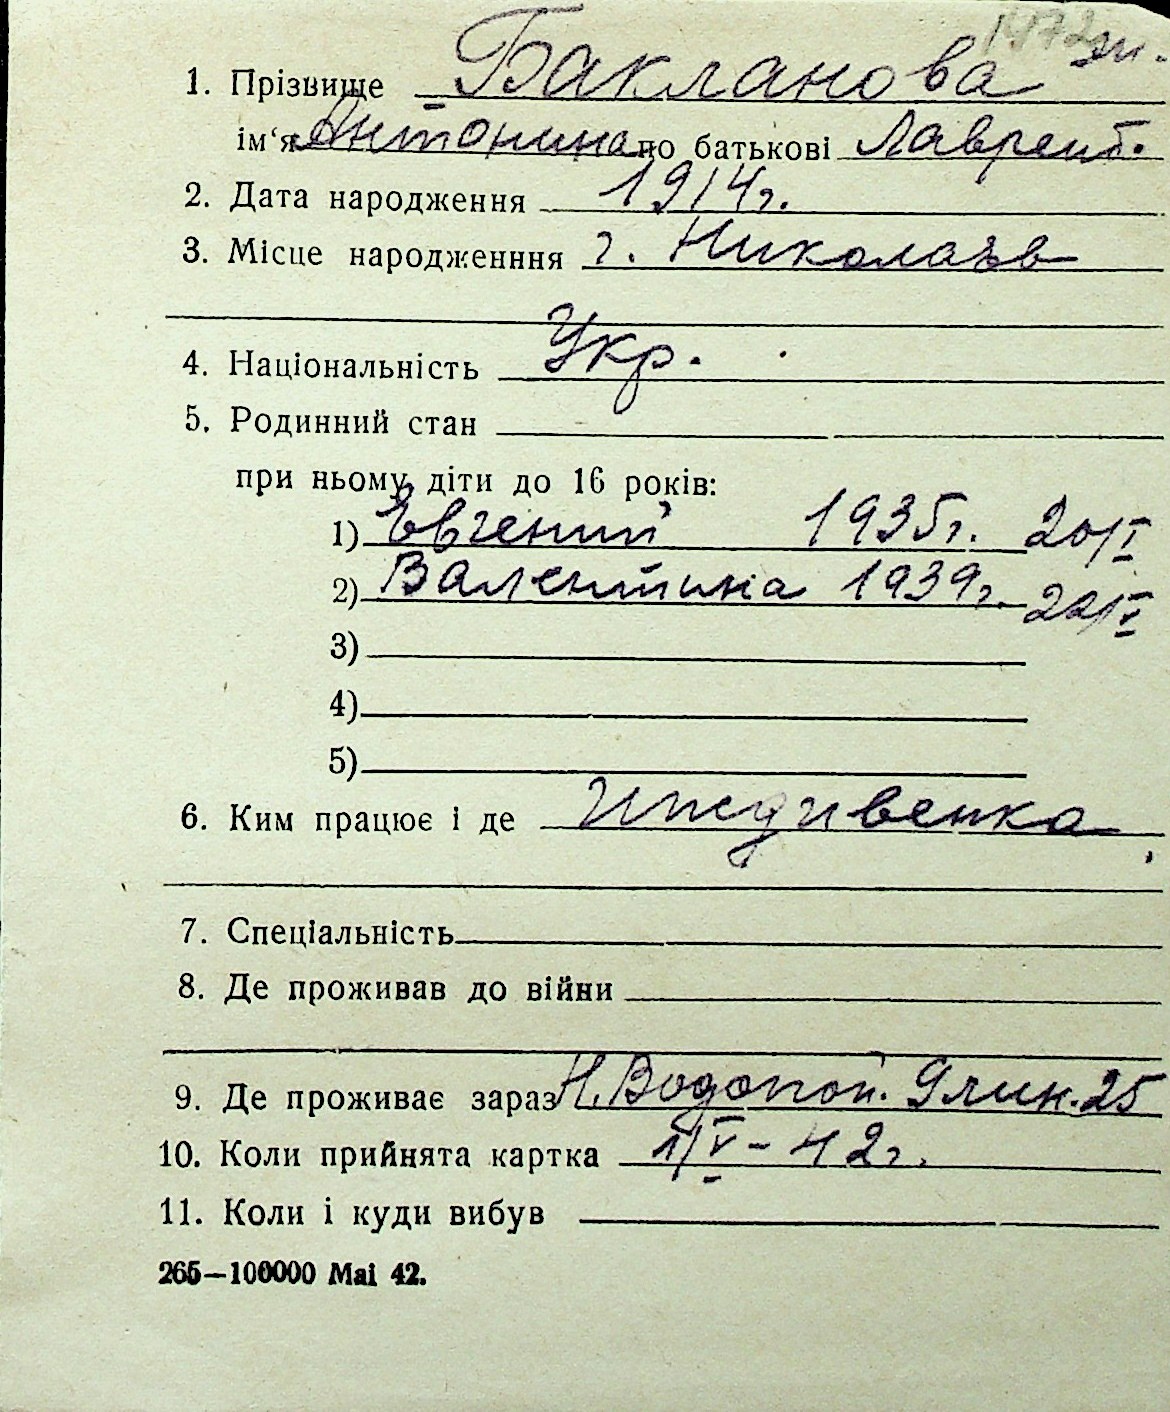 1472
1. Прізвище Бакланова
ім‘я Антонина по батькові Лаврент.
2. Дата народження 1914г.
3. Місце народженння г. Николаев
4. Національність Укр.
5. Родинний стан
при ньому діти до 16 років:
1) Евгений 1935г. 20/I
2) Валентина 1939г. 22/V
3)
4)
5)
6. Ким працює і де Иждивенка
7. Спеціальність
8. Де проживав до війни
9. Де проживає зараз Н. Водопой. 9 лин. 25
10. Коли прийнята картка 1/V-42г.
11. Коли і куди вибув
265—100000 Mai 42.